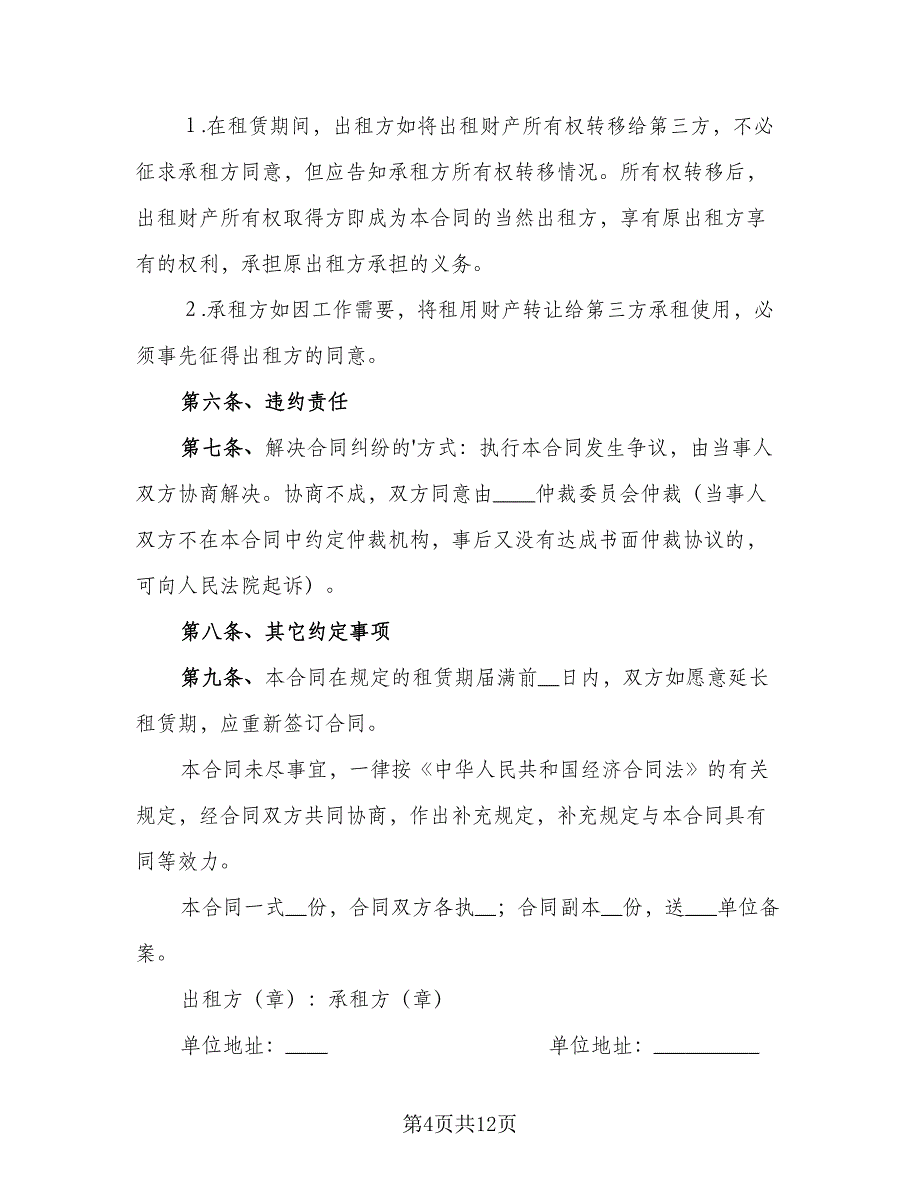 1.在租赁期间，出租方如将出租财产所有权转移给第三方，不必
征求承租方同意，但应告知承租方所有权转移情况。所有权转移后，
出租财产所有权取得方即成为本合同的当然出租方，享有原出租方享
有的权利，承担原出租方承担的义务。
2.承租方如因工作需要，将租用财产转让给第三方承租使用，必
须事先征得出租方的同意。
第六条、违约责任
第七条、解决合同纠纷的'方式：执行本合同发生争议，由当事人
双方协商解决。协商不成，双方同意由____仲裁委员会仲裁（当事人
双方不在本合同中约定仲裁机构，事后又没有达成书面仲裁协议的，
可向人民法院起诉）。
第八条、其它约定事项
第九条、本合同在规定的租赁期届满前__日内，双方如愿意延长
租赁期，应重新签订合同。
本合同未尽事宜，一律按《中华人民共和国经济合同法》的有关
规定，经合同双方共同协商，作出补充规定，补充规定与本合同具有
同等效力。
本合同一式__份，合同双方各执__；合同副本__份，送___单位备
案。
出租方（章）：承租方（章）
单位地址：____ 单位地址：__________
第4页共12页